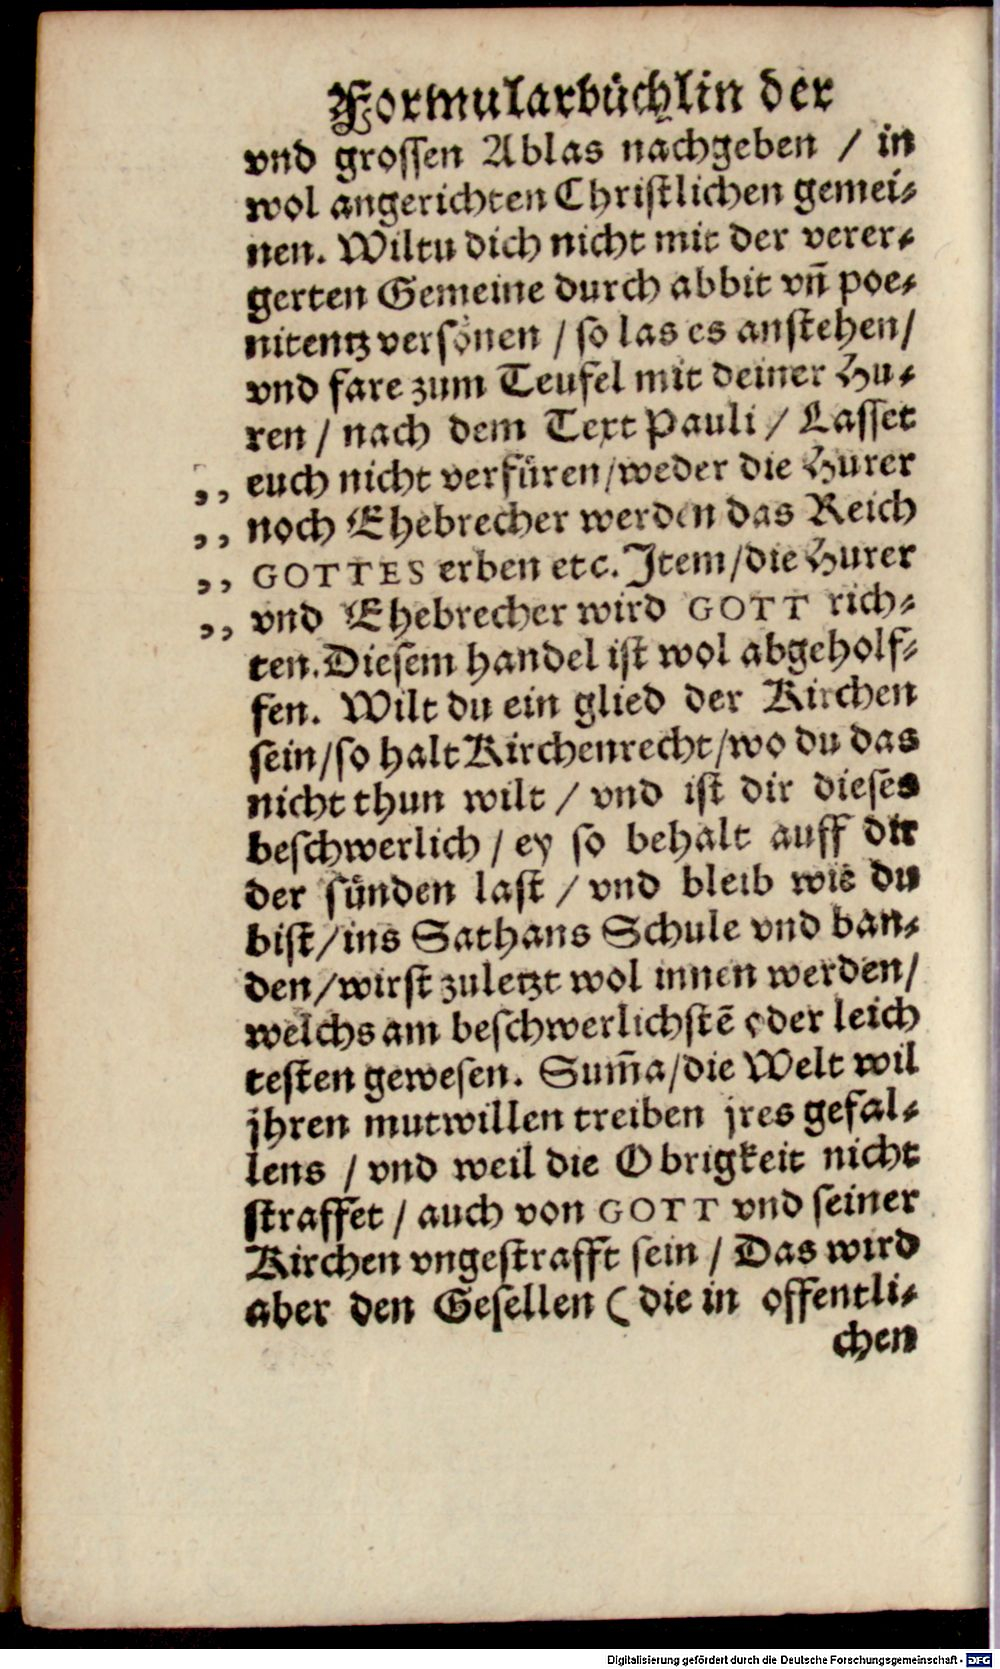 Formularbüchlin der
vnd grossen Ablas nachgeben / in
wol angerichten Christlichen gemei-
nen. Wiltu dich nicht mit der verer-
gerten Gemeine durch abbit vn̄ poe-
nitentz versönen / so las es anstehen/
vnd fare zum Teufel mit deiner Hu-
ren / nach dem Text Pauli / Lasset
,, euch nicht verfüren/weder die Hurer
,, noch Ehebrecher werden das Reich
,, GOTTES erben etc. Item/die Hurer
,, vnd Ehebrecher wird GOTT rich-
ten. Diesem handel ist wol abgeholf-
fen. Wilt du ein glied der Kirchen
sein/so halt Kirchenrecht/wo du das
nicht thun wilt / vnd ist dir dieses
beschwerlich / ey so behalt auff dir
der sünden last / vnd bleib wie du
bist/ins Sathans Schule vnd ban-
den/wirst zuletzt wol innen werden/
welchs am beschwerlichstē oder leich
testen gewesen. Sum̄a/die Welt wil
jhren mutwillen treiben jres gefal-
lens / vnd weil die Obrigkeit nicht
straffet / auch von GOTT vnd seiner
Kirchen vngestrafft sein / Das wird
aber den Gesellen (die in offentli-
chen
Digitalisierung gefördert durch die Deutsche Forschungsgemeinschaft - DFG